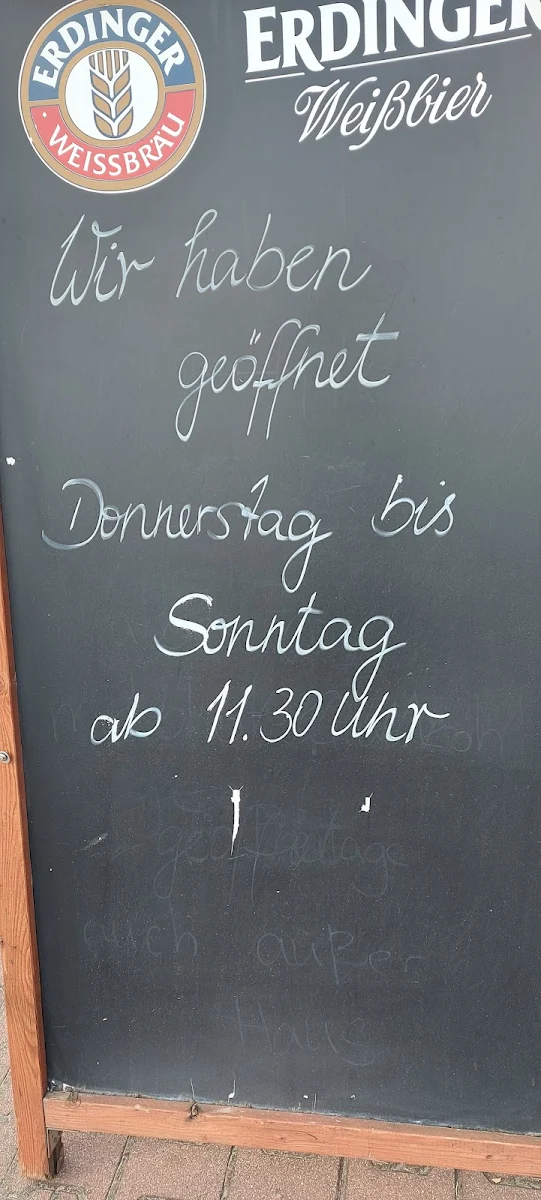 ERDINGER
WEISSBRÄU
ERDINGER
Weißbier
Wir haben
geöffnet
Donnerstag bis
Sonntag
ab 11.30 Uhr
auch außer
Haus